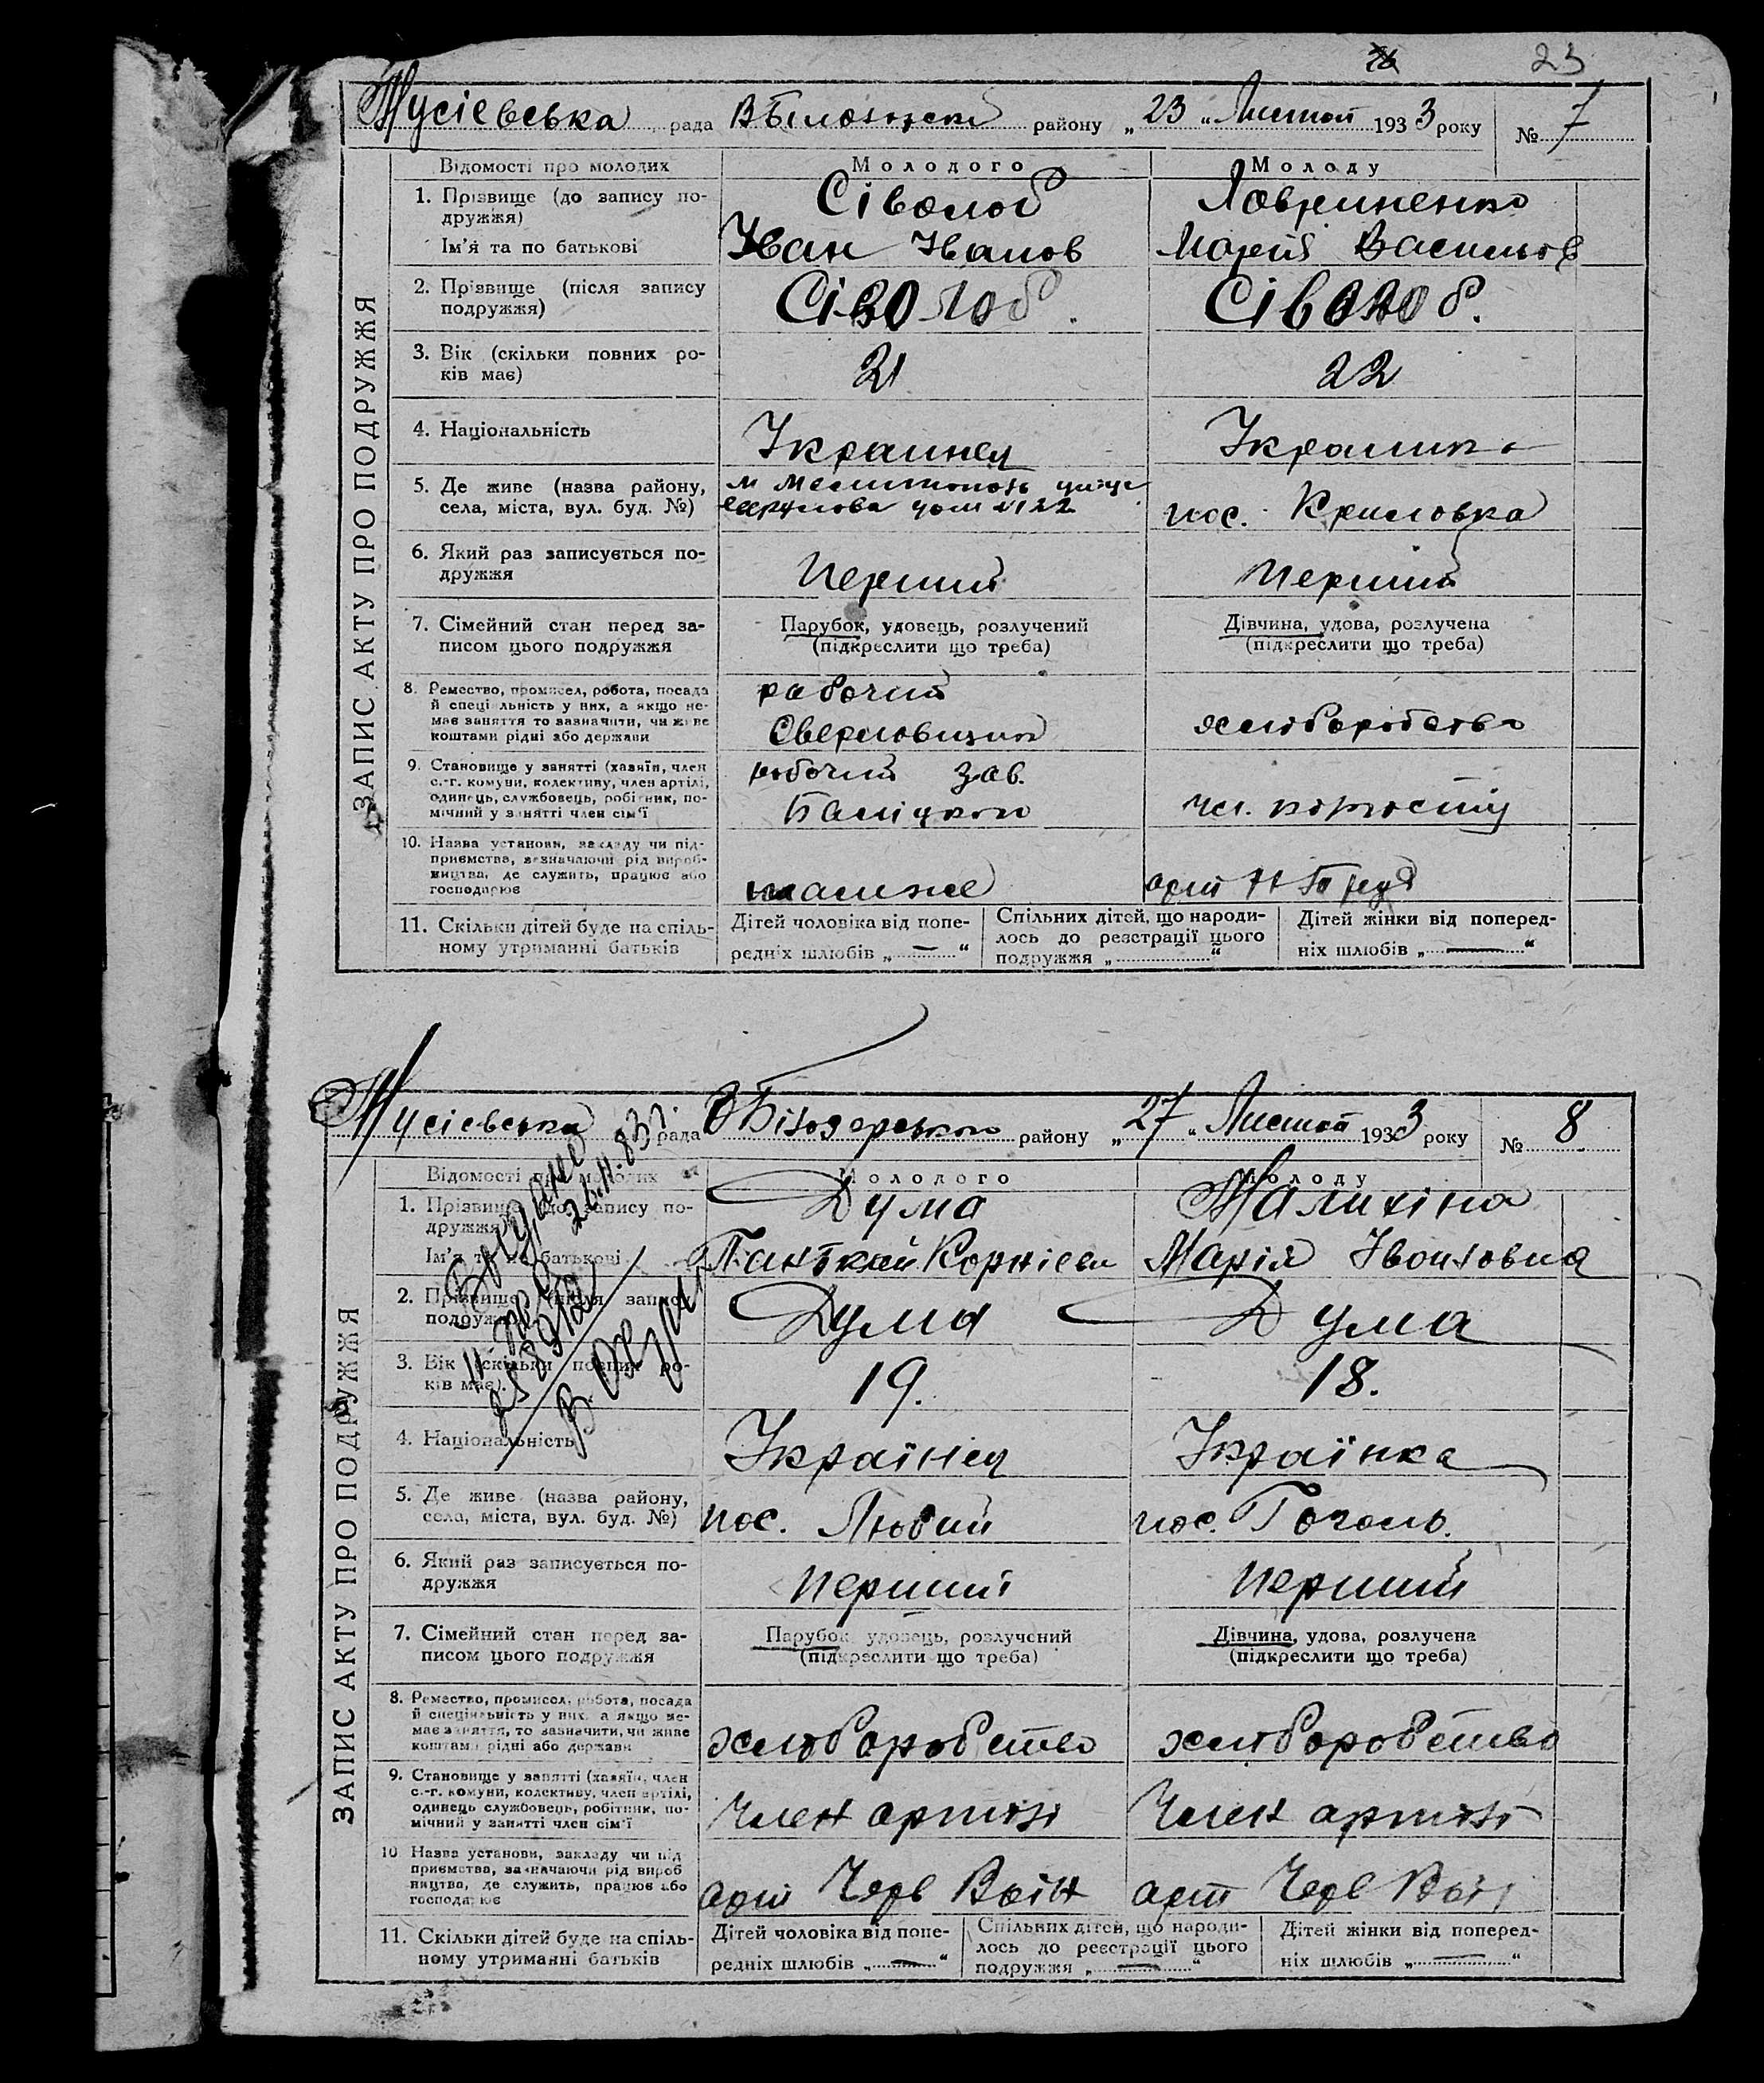 23
Мусієвська рада В Білозерськ району „23“ Листоп 1933 року № 7
ЗАПИС АКТУ ПРО ПОДРУЖЖЯ
Відомості про молодих
Молодого
Молоду
1. Прізвище (до запису по-
дружжя)
Сіволоб
Лавриненко
Ім’я та по батькові
Іван Іванов
Марія Васильов
2. Прізвище (після запису
подружжя)
Сіволоб.
Сіволоб.
3. Вік (скільки повних ро-
ків має)
21
22
4. Національність
Украинец
Украинка
5. Де живе (назва району,
села, міста, вул. буд. №)
м Мелитополь
дом №22
пос. Криловка
6. Який раз записується по-
дружжя
Перший
Перший
7. Сімейний стан перед за-
писом цього подружжя
Парубок, удовець, розлучений
(підкреслити що треба)
Дівчина, удова, розлучена
(підкреслити що треба)
8. Ремество, промисел, робота, посада
й спеціяльність у них, а якщо не-
має заняття то зазначити, чи живе
коштами рідні або держави
рабочий
Сверловщик
хліборобство
9. Становище у занятті (хазяїн, член
с.-г. комуни, колективу, член артілі,
одинець, службовець, робітник, по-
мічний у занятті член сім’ї
робочий зав.
чл.
10. Назва установи, закладу чи під-
приємства, зазначаючи рід вироб-
ництва, де служить, працює або
господарює
арт
11. Скільки дітей буде на спіль-
ному утриманні батьків
Дітей чоловіка від попе-
редніх шлюбів „—“
Спільних дітей, що народи-
лось до реєстрації цього
подружжя „ “
Дітей жінки від поперед-
ніх шлюбів „—“
Мусієвська рада В Білозерського району „27“ Листоп 1933 року № 8
ЗАПИС АКТУ ПРО ПОДРУЖЖЯ
Відомості про молодих
Молодого
Молоду
1. Прізвище (до запису по-
дружжя)
Дума
Малихіна
Ім’я та по батькові
Корнієв
Марія Івановна
2. Прізвище (після запису
подружжя)
Дума
Дума
3. Вік (скільки повних ро-
ків має)
19.
18.
4. Національність
Українец
Українка
5. Де живе (назва району,
села, міста, вул. буд. №)
пос. Любий
пос. Гоголь.
6. Який раз записується по-
дружжя
Перший
Перший
7. Сімейний стан перед за-
писом цього подружжя
Парубок, удовець, розлучений
(підкреслити що треба)
Дівчина, удова, розлучена
(підкреслити що треба)
8. Ремество, промисел, робота, посада
й спеціяльність у них, а якщо не-
має заняття, то зазначити, чи живе
коштами рідні або держави
хліборобство
хліборобство
9. Становище у занятті (хазяїн, член
с.-г. комуни, колективу, член артілі,
одинець службовець, робітник, по-
мічний у занятті член сім’ї
Член артілі
Член артілі
10 Назва установи, закладу чи під
приємства, зазначаючи рід вироб
ництва, де служить, працює або
господарює
арт Черв Воїн
арт Черв Воїн
11. Скільки дітей буде на спіль-
ному утриманні батьків
Дітей чоловіка від попе-
редніх шлюбів „—“
Спільних дітей, що народи-
лось до реєстрації цього
подружжя „—“
Дітей жінки від поперед-
ніх шлюбів „—“